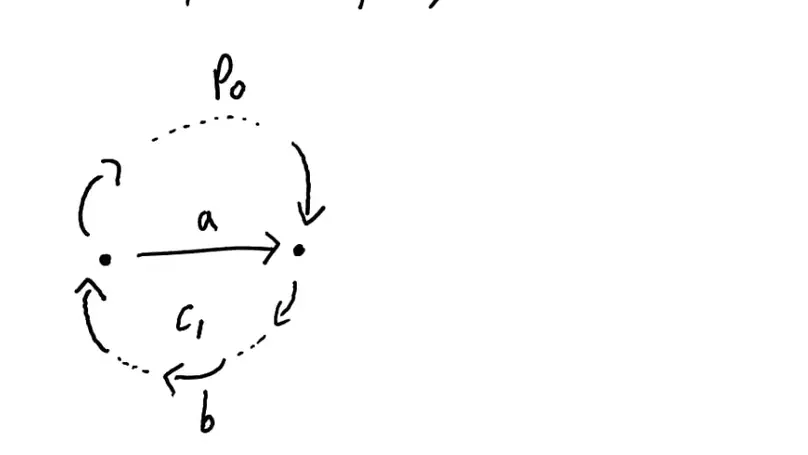 P₀
a
C₁
b